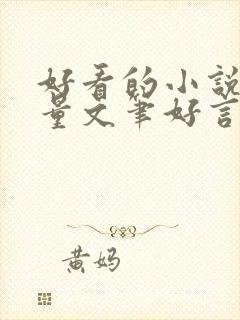 好看的小說
量文筆好言
黄妈